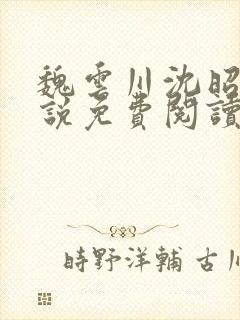 魏雲川沈昭
說免費閱讀
時野洋輔 古川